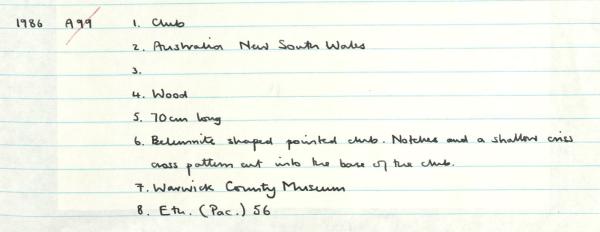 1986 A99 1. Club
2. Australia New South Wales
3.
4. Wood
5. 70cm long
6. Belemnite shaped pointed club. Notches and a shallow criss
cross pattern cut into the base of the club.
7. Warwick County Museum
8. Eth. (Pac.) 56